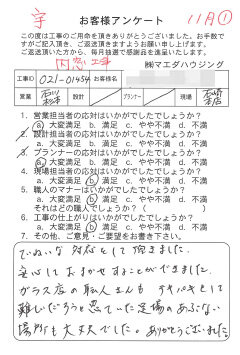 宇
お客様アンケート
11月①
この度は工事のご用命を頂きありがとうございました。お手数で
すがご記入頂き、ご返送頂きますようお願い申し上げます。
ご返送頂いた方から、毎月抽選で感謝品を進呈いたします。
内窓工事
㈱マエダハウジング
工事ID 021-01454 お客様名
営業 石川 松本 設計 プランナー 現場
1. 営業担当者の応対はいかがでしたでしょうか?
a 大変満足 b 満足 c やや不満 d 不満
2. 設計担当者の応対はいかがでしたでしょうか?
a 大変満足 b 満足 c やや不満 d 不満
3. プランナーの応対はいかがでしたでしょうか?
a 大変満足 b 満足 c やや不満 d 不満
4. 現場担当者の応対はいかがでしたでしょうか?
a 大変満足 b 満足 c やや不満 d 不満
5. 職人のマナーはいかがでしたでしょうか?
a 大変満足 b 満足 c やや不満 d 不満
それはどの職人でしょうか?( )
6. 工事の仕上がりはいかがでしたでしょうか?
a 大変満足 b 満足 c やや不満 d 不満
7. その他、ご意見・ご要望をお書き下さい。
ていねいな対応をして頂きました。
安心しておまかせすることができました。
ガラス店の職人さんも テキパキとして
難しいだろうと思っていた足場のあぶない
場所も大丈夫でした。ありがとうございました。